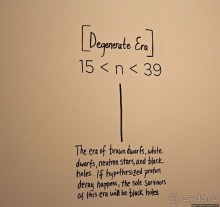 [Degenerate Era]
15 < n < 39
The era of brown dwarfs, white
dwarfs, neutron stars, and black
holes. If hypothesized proton
decay happens, the sole survivors
of this era will be black holes